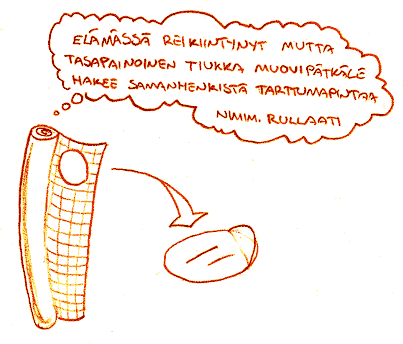 ELÄMÄSSÄ REIKIINTYNYT MUTTA
TASAPAINOINEN TIUKKA MUOVIPÄTKÄLE
HAKEE SAMANHENKISTÄ TARTTUMAPINTAA
NIMIM. RULLAATI